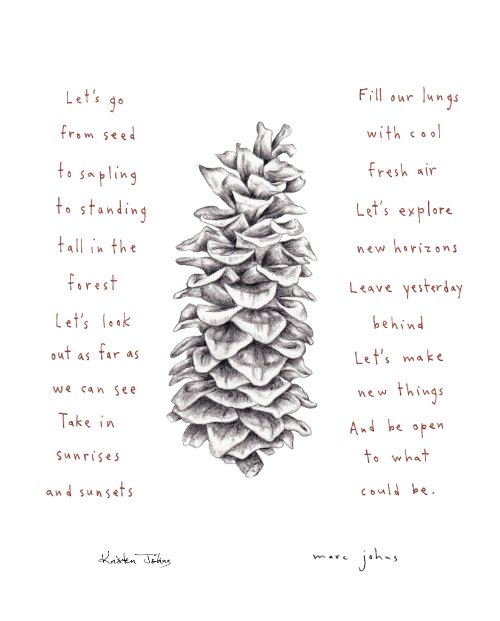 Let's go
from seed
to sapling
to standing
tall in the
forest
Let's look
out as far as
we can see
Take in
sunrises
and sunsets
Fill our lungs
with cool
fresh air
Let's explore
new horizons
Leave yesterday
behind
Let's make
new things
And be open
to what
could be.
Kristen Johns
marc johns